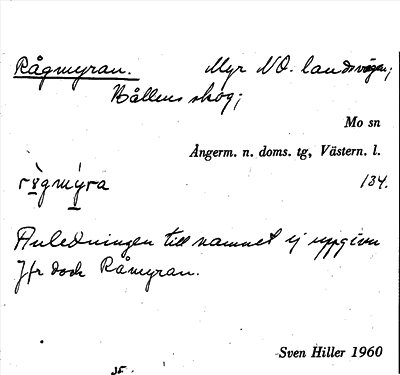 Rågmyran. Myr NO. landsvägen;
Nållens skog;
Mo sn
Ångerm. n. doms. tg, Västern. l.
134.
Anledningen till namnet ej uppgiven
Jfr dock Råmyran.
Sven Hiller 1960